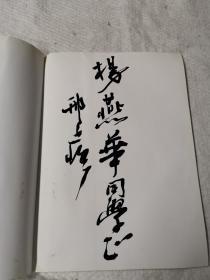 楊燕華同學正
邢